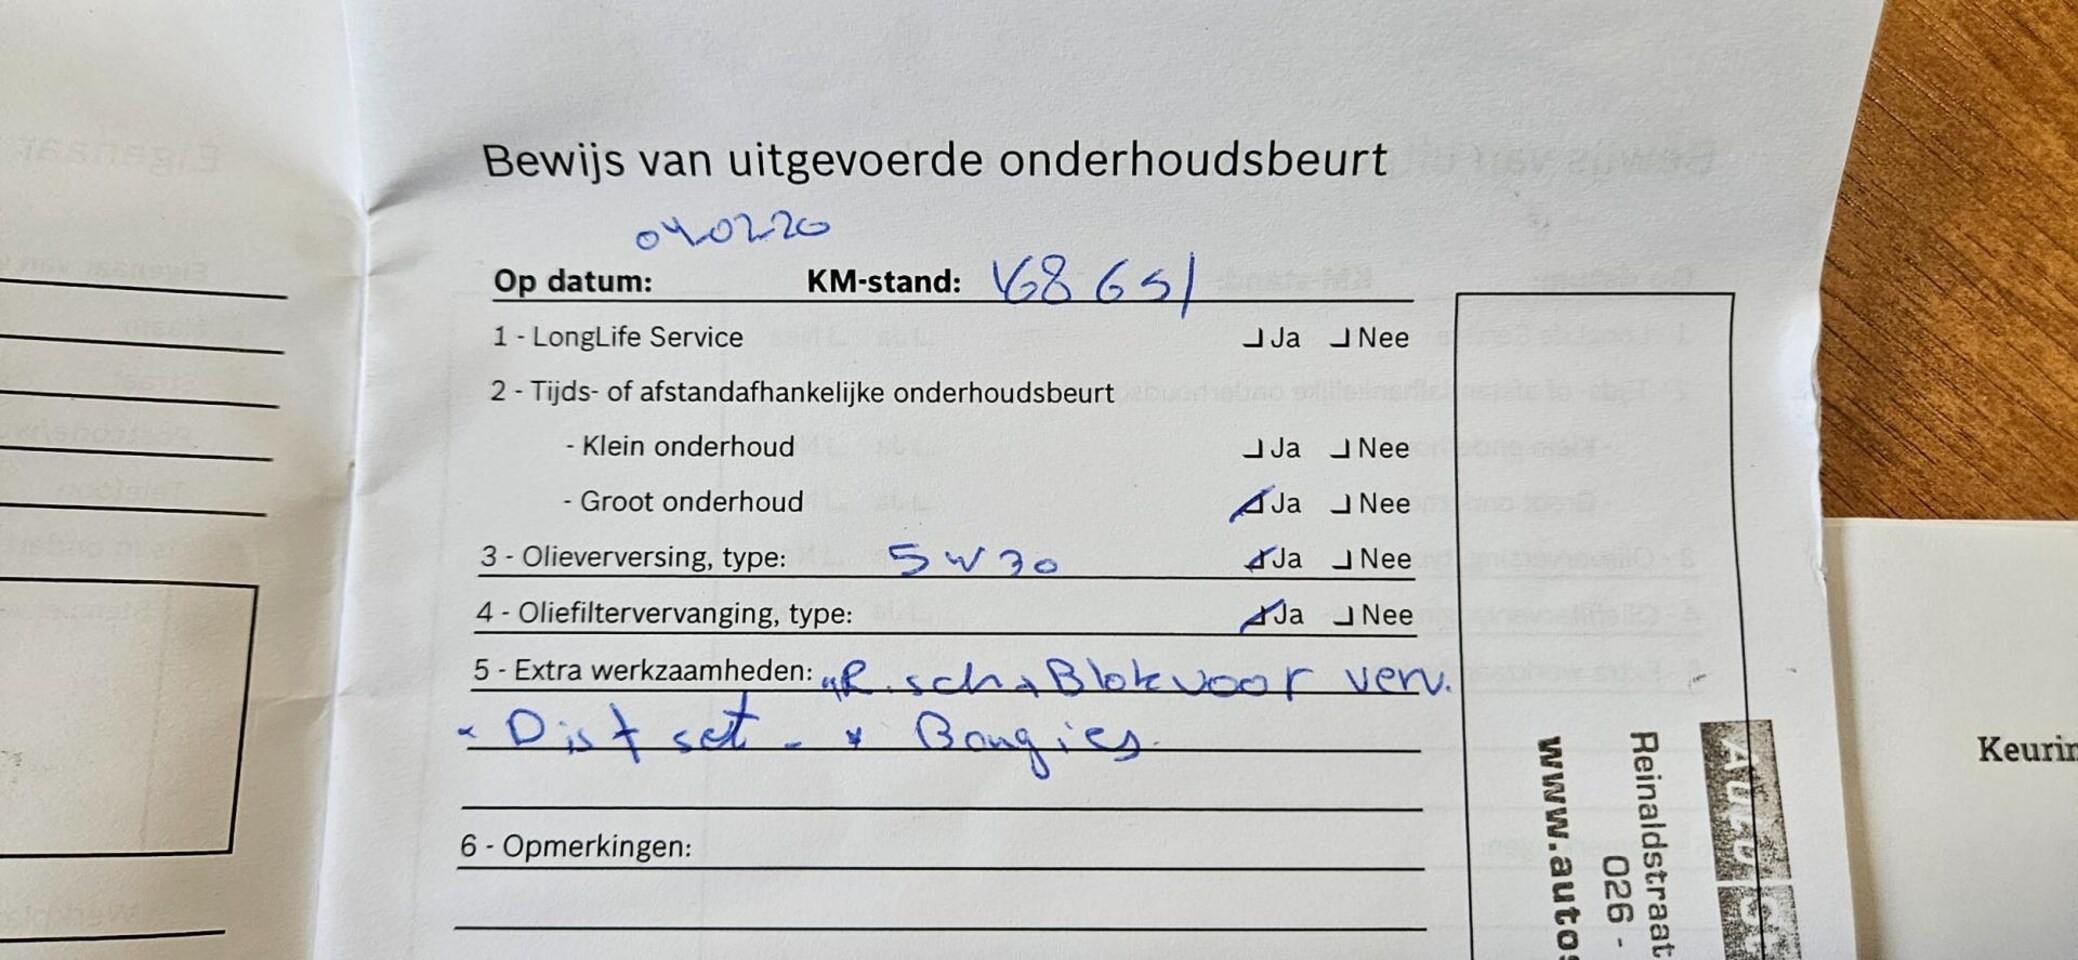 Bewijs van uitgevoerde onderhoudsbeurt
04.02.20
Op datum: KM-stand: 168651
1 - LongLife Service Ja Nee
2 - Tijds- of afstandafhankelijke onderhoudsbeurt
- Klein onderhoud Ja Nee
- Groot onderhoud Ja Nee
3 - Olieverversing, type: 5W30 Ja Nee
4 - Oliefiltervervanging, type: Ja Nee
5 - Extra werkzaamheden: R.sch+Blokvoor verv.
Dist set - * Bougies
6 - Opmerkingen:
Auto
Reinaldstraat
026 -
www.autos
Keurin